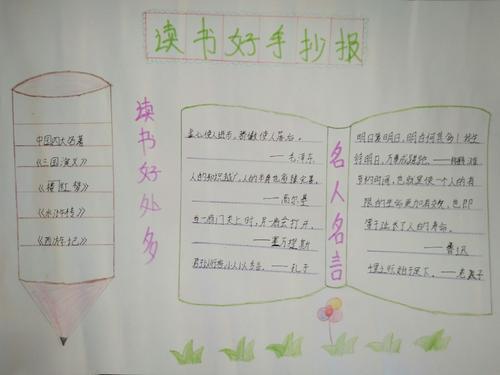 读书好手抄报
中国四大名著
《三国演义》
《楼红梦》
《水浒传》
《西游记》
读书好处多
虚心使人进步，骄傲使人落后。
——毛泽东
人的知识越广，人的本身也愈臻完善。
——高尔基
当一扇门关上时，另一扇会打开。
——塞万提斯
君子以行言，小人以舌言。——孔子
名人名言
明日复明日，明日何其多！我生
待明日，万事成蹉跎。——鹤滩
节约时间，也就是使一个人的有
限的生命更加有效，也即
等于延长了人的寿命。
——鲁迅
千里之行始于足下。——老